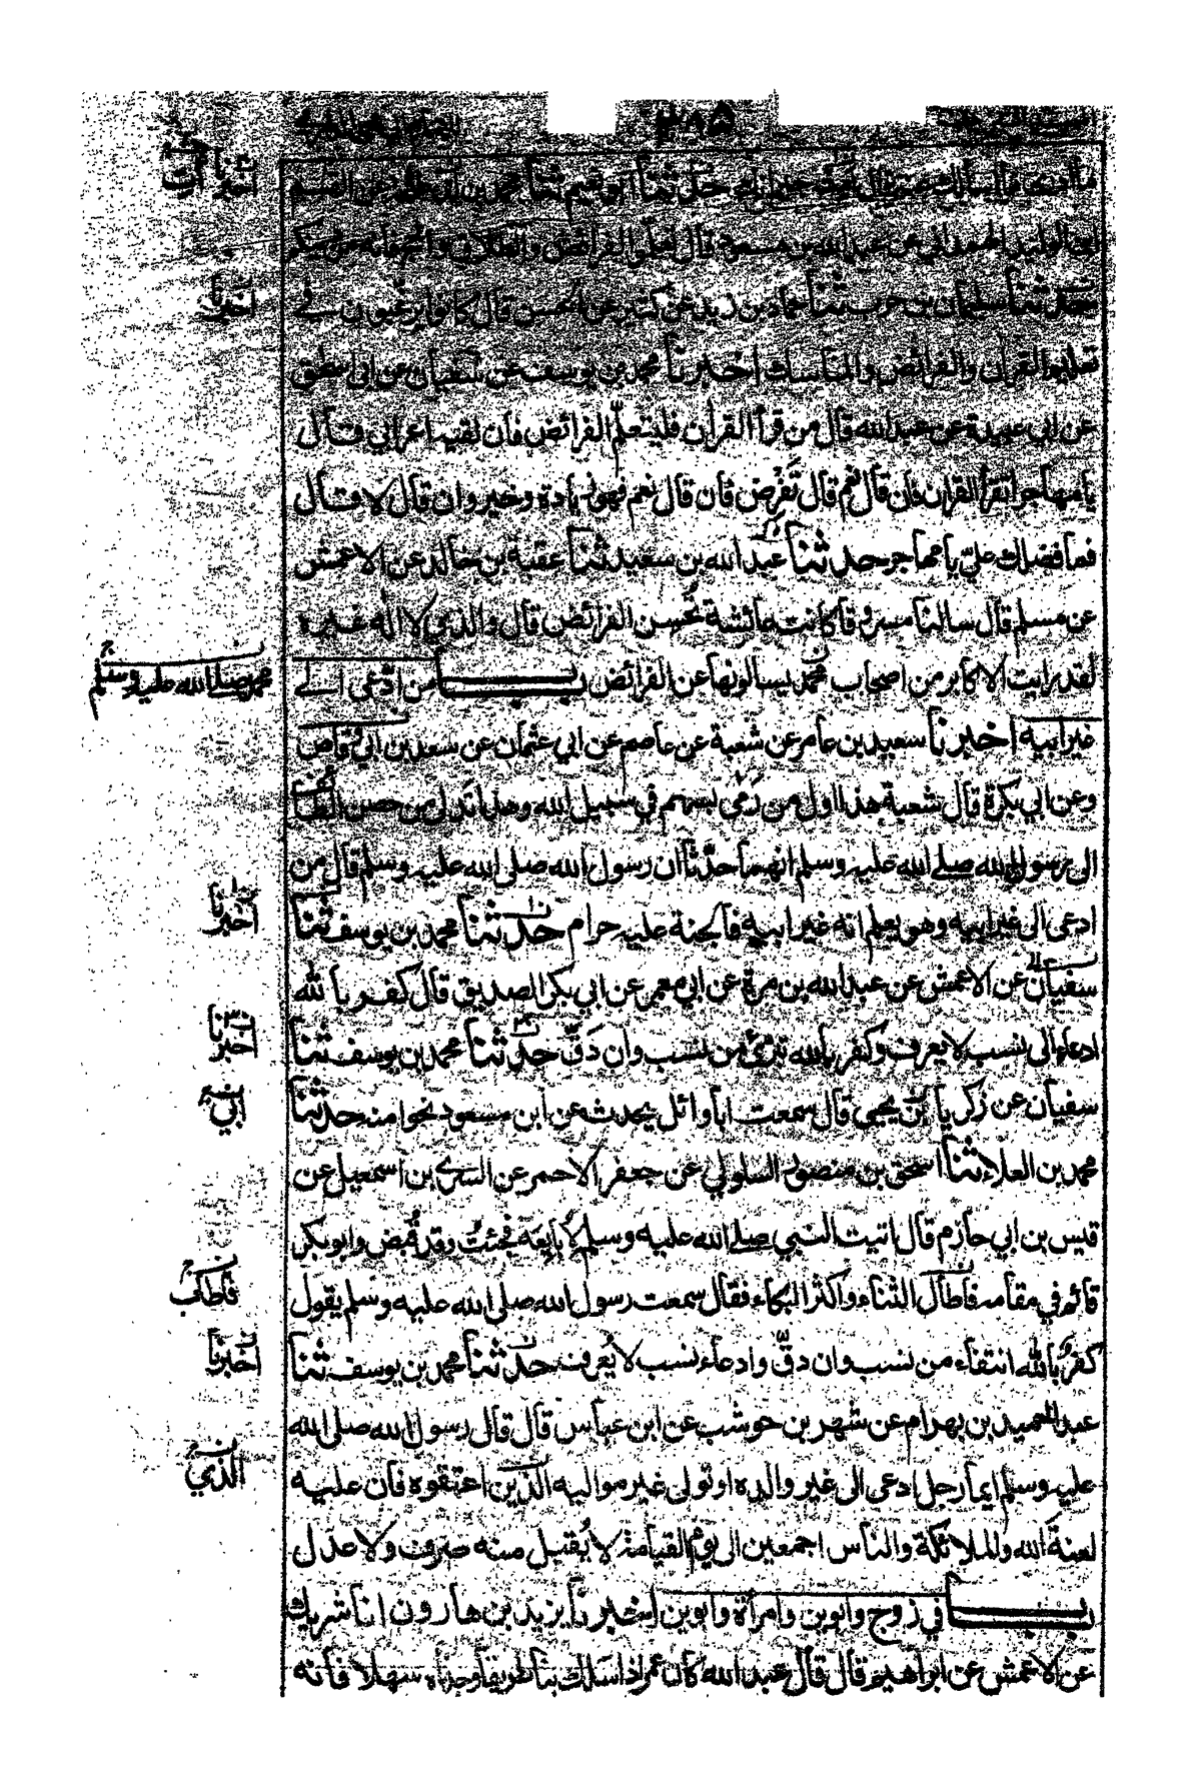 ٣٨٥
حدثنا ابو نعيم ثنا محمد بن طلحة عن القاسم
ابن الوليد الهمداني عن عبد الله بن مسعود قال تعلموا الفرائض والطلاق والحج فانه من دينكم
حدثنا سليمان بن حرب ثنا حماد بن زيد عن كثير عن الحسن قال كانوا يرغبون في
تعليم القرأن والفرائض والمناسك اخبرنا محمد بن يوسف عن سفيان عن ابي اسحق
عن ابي عبيدة عن عبد الله قال من قرأ القرأن فليتعلّم الفرائض فان لقيه اعرابي قال
يا مهاجر اتقرأ القرأن فان قال نعم قال تَفْرِض فان قال نعم فهو زيادة وخير وان قال لا قال
فما فضلك عليّ يا مهاجر حدثنا عبد الله بن سعيد ثنا عقبة بن خالد عن الاعمش
عن مسلم قال سالنا مسروقا كانت عائشة تُحسن الفرائض قال والذي لا اله غيره
لقد رايت الاكابر من اصحاب محمد يسألونها عن الفرائض باب من ادّعى الى
غير ابيه اخبرنا سعيد بن عامر عن شعبة عن عاصم عن ابي عثمان عن سعد بن ابي وقاص
وعن ابي بكرة قال شعبة هذا اول من رمى بسهم في سبيل الله وهذا تدلى من حصن الطائف
الى رسول الله صلى الله عليه وسلم انهما حدّثا ان رسول الله صلى الله عليه وسلم قال من
ادعى الى غير ابيه وهو يعلم انه غير ابيه فالجنة عليه حرام حدثنا محمد بن يوسف ثنا
سفيان عن الاعمش عن عبد الله بن مرة عن ابي معمر عن ابي بكر الصديق قال كفر بالله
ادعاء الى نسب لا يعرف وكفر بالله تبرئ من نسب وان دَقّ حدثنا محمد بن يوسف ثنا
سفيان عن زكريا بن يحيى قال سمعت ابا وائل يحدث عن ابن مسعود نحوا منه حدثنا
محمد بن العلاء ثنا اسحق بن منصور السلولي عن جعفر الاحمر عن السري بن اسمعيل عن
قيس بن ابي حازم قال اتيت النبي صلى الله عليه وسلم لابايعه فجئت وقد قُبض وابو بكر
قائم في مقامه فاطال الثناء واكثر البكاء فقال سمعت رسول الله صلى الله عليه وسلم يقول
كفرٌ بالله انتفاء من نسب وان دقّ وادعاء نسب لا يُعرف حدثنا محمد بن يوسف ثنا
عبد الحميد بن بهرام عن شهر بن حوشب عن ابن عباس قال قال رسول الله صلى الله
عليه وسلم ايما رجل ادعى الى غير والده او تولى غير مواليه الذين اعتقوه فان عليه
لعنة الله والملائكة والناس اجمعين الى يوم القيامة لا يُقبل منه صرف ولا عدل
باب في زوج وابوين وامرأة وابوين اخبرنا يزيد بن هارون انا شريك
عن الاعمش عن ابراهيم قال قال عبد الله كان عمر اذا سلك بنا طريقا وجدناه سهلا فانه
اخبرنا
اخبرنا
محمد صلى الله عليه وسلم
اخبرنا
اخبرنا
ابي
فأطاب
اخبرنا
الذي